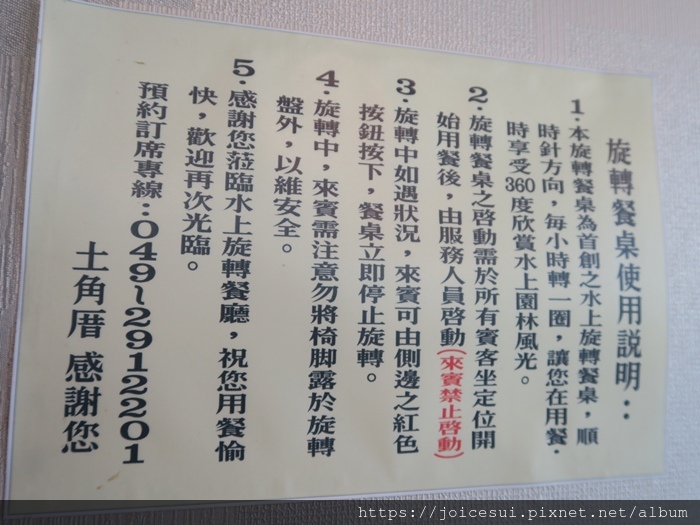 旋轉餐桌使用說明：
1．本旋轉餐桌為首創之水上旋轉餐桌，順
時針方向，每小時轉一圈，讓您在用餐．
時享受360度欣賞水上園林風光。
2．旋轉餐桌之啓動需於所有賓客坐定位開
始用餐後，由服務人員啓動(來賓禁止啓動)
3．旋轉中如遇狀況，來賓可由側邊之紅色
按鈕按下，餐桌立即停止旋轉。
4．旋轉中，來賓需注意勿將椅脚露於旋轉
盤外，以維安全。
5．感謝您蒞臨水上旋轉餐廳，祝您用餐愉
快，歡迎再次光臨。
預約訂席專線：049~2912201
土角厝 感謝您
https://joicesui.pixnet.net/album